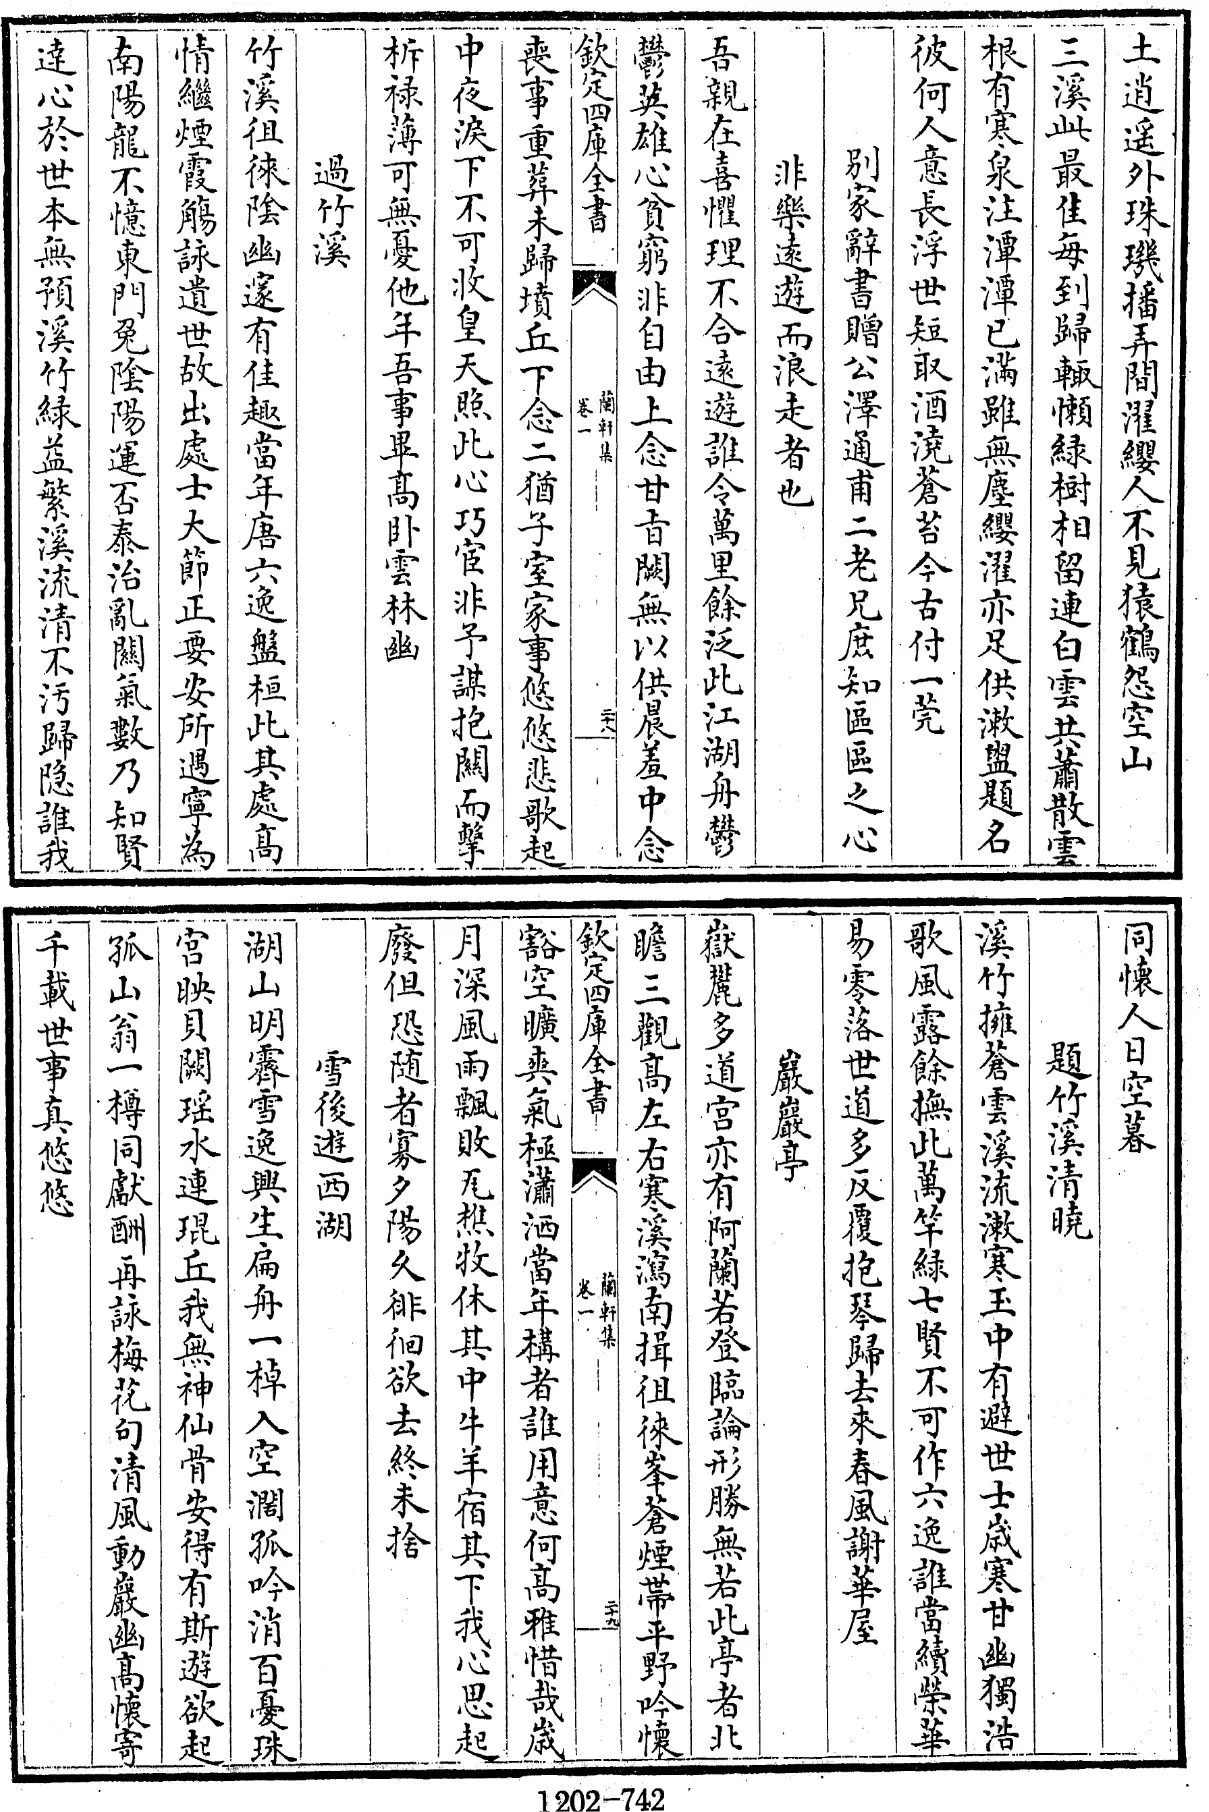 土逍遥外珠璣播弄間濯纓人不見猿鶴怨空山
三溪此最佳每到歸輒懶緑樹相留連白雲共蕭散雲
根有寒泉注潭潭已滿雖無塵纓濯亦足供漱盥題名
彼何人意長浮世短取酒澆蒼苔今古付一莞
别家辭書贈公澤通甫二老兄庶知區區之心
非樂逺遊而浪走者也
吾親在喜懼理不合逺遊誰令萬里餘泛此江湖舟鬱
鬱英雄心貧窮非自由上念甘㫖闕無以供晨羞中念
欽定四庫全書
蘭軒集
卷一
二十八
喪事重葬未歸墳丘下念二猶子室家事悠悠悲歌起
中夜淚下不可收皇天照此心巧宦非予謀抱關而擊
柝禄薄可無憂他年吾事畢髙卧雲林幽
過竹溪
竹溪徂徠陰幽邃有佳趣當年唐六逸盤桓此其處髙
情繼煙霞觴詠遺世故出處士大節正要安所遇寧為
南陽龍不憶東門兔陰陽運否泰治亂關氣數乃知賢
達心於世本無預溪竹緑益繁溪流清不汚歸隐誰我
同懷人日空暮
題竹溪清曉
溪竹擁蒼雲溪流漱寒玉中有避世士嵗寒甘幽獨浩
歌風露餘撫此萬竿緑七賢不可作六逸誰當續榮華
易零落世道多反覆抱琴歸去來春風謝華屋
巖巖亭
嶽麓多道宫亦有阿蘭若登臨論形勝無若此亭者北
瞻三觀髙左右寒溪瀉南揖徂徠峯蒼煙帶平野吟懷
欽定四庫全書
蘭軒集
卷一
二十九
豁空曠爽氣極瀟洒當年構者誰用意何髙雅惜哉嵗
月深風雨飄敗瓦樵牧休其中牛羊宿其下我心思起
廢但恐随者寡夕陽久徘徊欲去終未捨
雪後遊西湖
湖山明霽雪逸興生扁舟一棹入空濶孤吟消百憂珠
宫映貝闕瑶水連琨丘我無神仙骨安得有斯遊欲起
孤山翁一樽同獻酬再詠梅花句清風動巖幽髙懷寄
千載世事真悠悠
1202-742